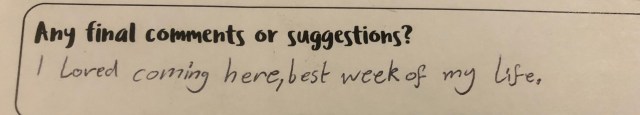 Any final comments or suggestions?
I Loved coming here, best week of my life.